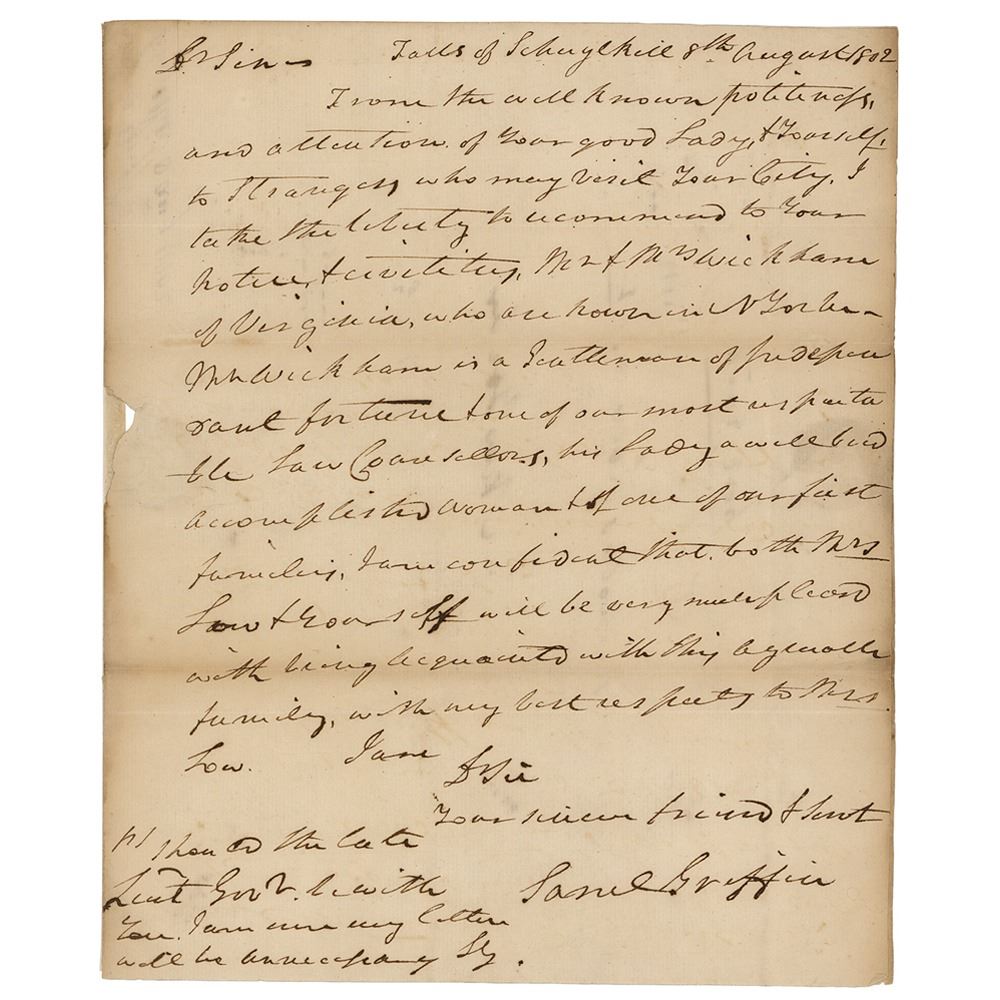 Dr Sir Falls of Schuylkill 8th August 1802
From the well known politeness,
and attention of Your good Lady, & Yourself,
to Strangers, who may visit Your City, I
take the liberty to recommend to Your
notice, & civilities, Mr & Mrs Wickham
of Virginia, who are now in N York
Mr Wickham is a Gentleman of Indepen
dant fortune & one of our most respecta
ble Law Counsellors, his Lady a well bred
accomplished woman & of one of our first
families, I am confident that both Mrs
Low & Yourself will be very much pleased
with being acquainted with this agreeable
family, with my best respects to Mrs
Low. I am
Dr Sir
Your sincere friend & Servt
Saml Griffin
PS should the late
Lieut Govr be with
You. I am sure my letter
will be unnecessary SG.